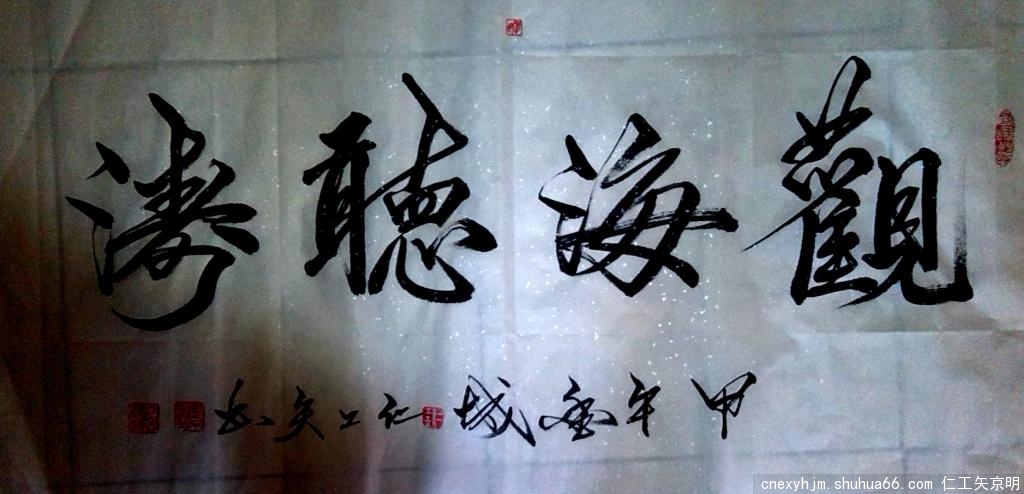 觀海聽濤
甲午金城仁工矢書
cnexyhjm.shuhua66.com 仁工矢京明